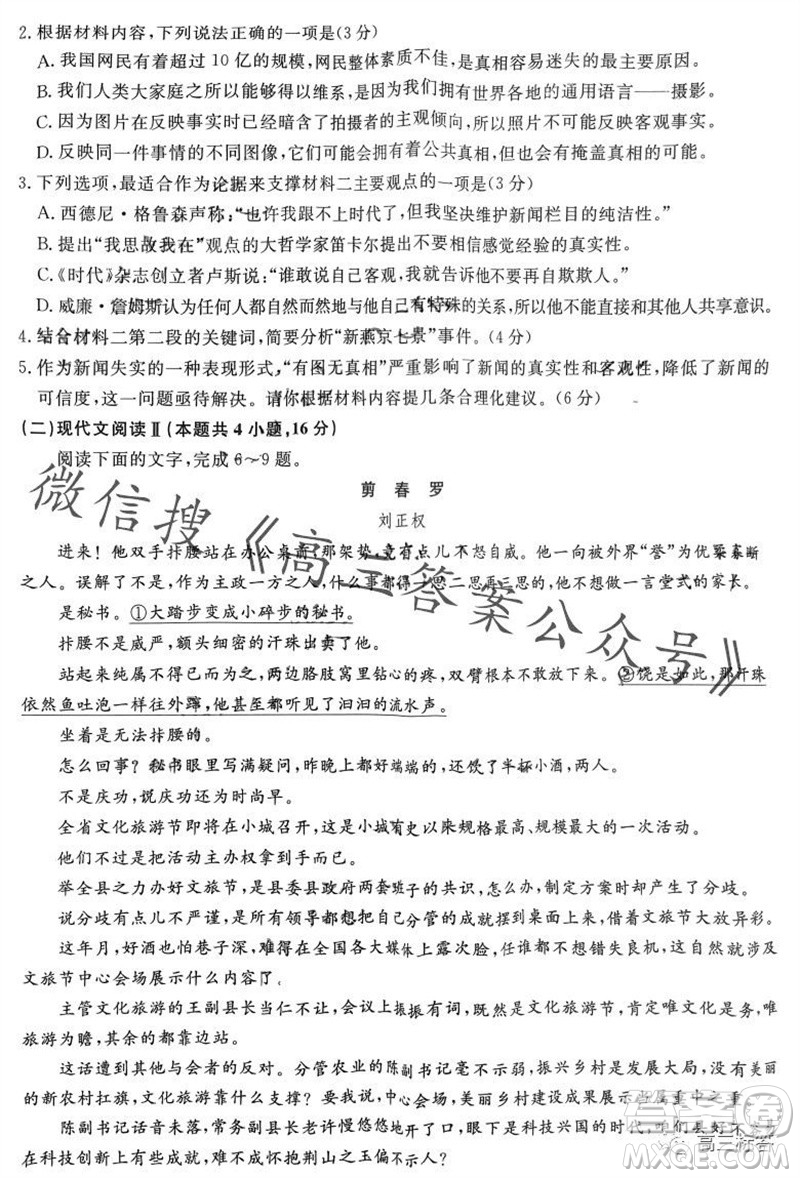 2. 根据材料内容,下列说法正确的一项是(3 分)
A. 我国网民有着超过 10 亿的规模,网民整体素质不佳,是真相容易迷失的最主要原因。
B. 我们人类大家庭之所以能够得以维系,是我们拥有世界各地的通用语言——摄影。
C. 因为图片在反映事实时已经暗含了拍摄者的主观倾向,所以照片不可能反映客观事实。
D. 反映同一件事情的不同图像,它们既可能有着公共真相,也会有掩盖真相的可能。
3. 下列选项,最适合作为论据来支撑材料二主要观点的一项是(3 分)
A. 西德尼·格鲁森声称:“也许我跟不上时代了,但我坚决维护新闻栏目的纯洁性。”
B. 提出“我思故我在”观点的大哲学家笛卡尔提出不要相信感觉经验的真实性。
C.《时代》杂志创立者卢斯说:“谁敢说自己客观,我就告诉他不要再自欺欺人。”
D. 威廉·詹姆斯认为任何人都自然而然地与他人有特殊的关系,所以要与其他人共享意识。
4. 结合材料二第二段的关键词,简要分析“新燕京七景”事件。(4 分)
5. 作为新闻失实的一种表现形式,“有图无真相”严重影响了新闻的真实性和客观性,降低了新闻的
可信度,这一问题亟待解决。请你根据材料内容提几条合理化建议。(6 分)
(二)现代文阅读Ⅱ(本题共 4 小题,16 分)
阅读下面的文字,完成 6～9 题。
剪春罗
刘正权
进来!他双手抃腰站在办公桌前,那架势,竟有点儿不怒自威。他一向被外界“誉”为柔春断
之人。误解了不是,作为主政一方之人,什么事都得一思二思再三思的,他不想做一言堂式的家长。
是秘书。①大踏步变成小碎步的秘书。
抃腰不是威严,额头细密的汗珠出卖了他。
站起来纯属不得已,两边胳肢窝里钻心的疼,双臂根本不敢放下来。②饶是如此,那汗珠
依然鱼吐泡一样往外蹿,他甚至都听见了汩汩的流水声。
坐着是无法抃腰的。
怎么回事?秘书眼里写满疑问,中午都好端端的,还喝了半杯小酒,两人。
不是庆功,说庆功还为时尚早。
全省文化旅游节即将在小城召开,这是小城有史以来规格最高、规模最大的一次活动。
他们不过是把活动主办权拿到手而已。
举全县之力办好文旅节,是县委县政府两套班子的共识,怎么办,制定方案时却有了分歧。
说分歧有点儿不严谨,是所有的领导都想把分管的成就摆到桌面上,借用文旅节大放异彩。
这年月,好酒也怕巷子深,难得在全国各大媒体上露次脸,任谁都不想错失良机,这就涉及
文旅节中心会场展示什么内容了。
主管文化旅游的王副县长当仁不让,上来就振振有词,既然是文化旅游节,肯定唯文化是举,
唯旅游为瞻,其余的都靠边站。
这话遭到了其他与会者的反对。分管农业的陈副书记毫不示弱,振兴乡村是发展大局,没有美丽
的新农村扛旗,文化旅游靠什么支撑?要我说,中心会场,美丽乡村建设成果展示当属重中之重。
陈副书记话音未落,常务副县长老许慢悠悠地开了口,眼下是科技兴国的时代,咱们县好不
在科技创新上有些成就,难不成怀抱荆山之玉偏不示人?
微信搜《高三答案公众号》
答案圈
高三标答